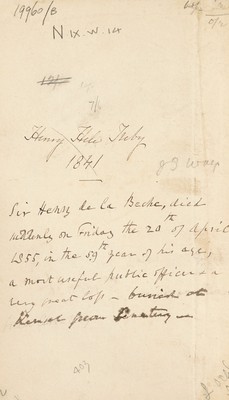 19960/B
Nix. W. ix
7/6
Henry
1841
Sir Henry de la Beche, died
suddenly on Friday the 20th of April
1855, in the 59th year of his age,
a most useful public officer & a
very great loss — buried at
Kensal green Cemetery —